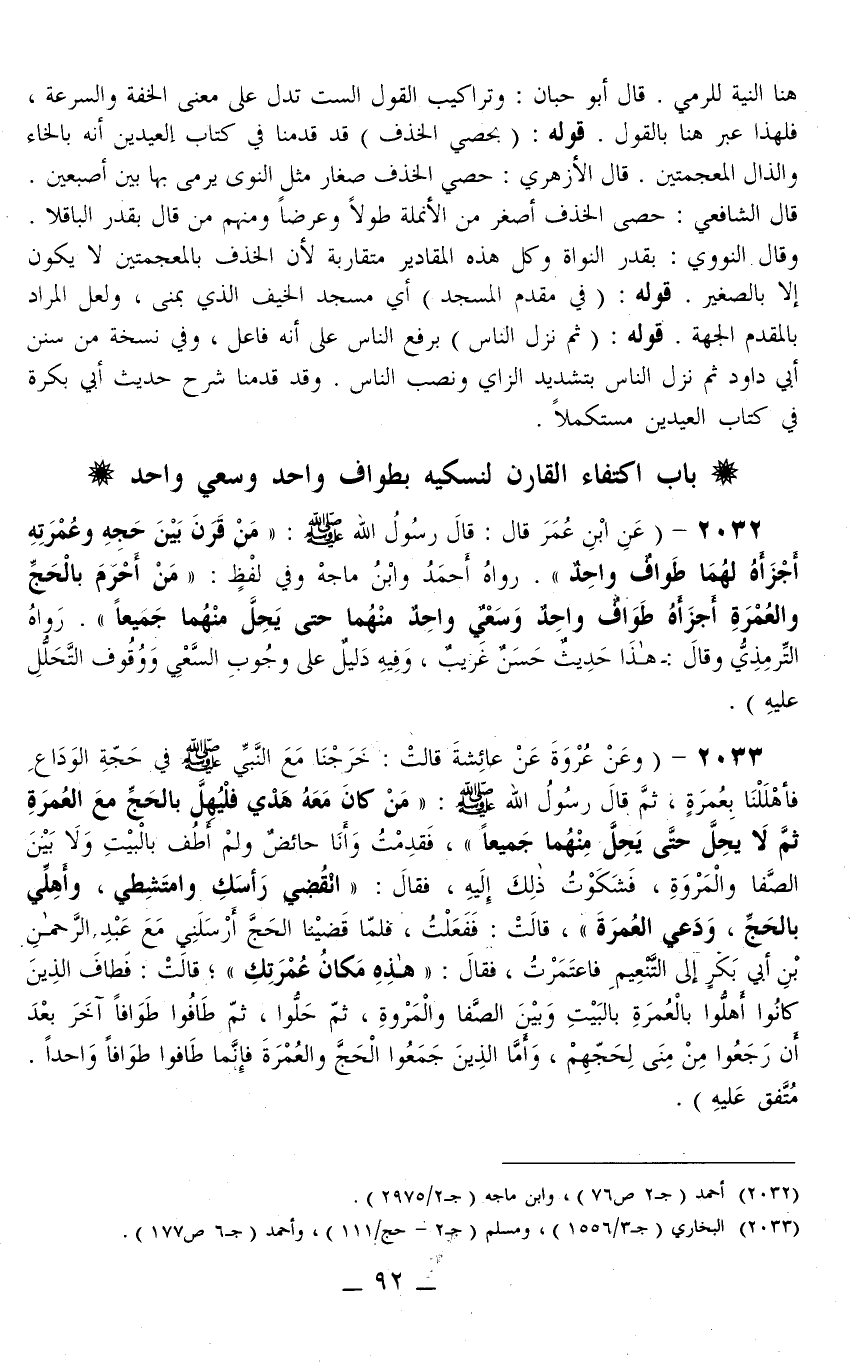 هنا النية للرمي . قال أبو حبان : وتراكيب القول الست تدل على معنى الخفة والسرعة ،
فلهذا عبر هنا بالقول . قوله : ( بحصي الخذف ) قد قدمنا في كتاب العيدين أنه بالخاء
والذال المعجمتين . قال الأزهري : حصي الخذف صغار مثل النوى يرمى بها بين أصبعين .
قال الشافعي : حصى الخذف أصغر من الأنملة طولاً وعرضاً ومنهم من قال بقدر الباقلا .
وقال النووي : بقدر النواة وكل هذه المقادير متقاربة لأن الخذف بالمعجمتين لا يكون
إلا بالصغير . قوله : ( في مقدم المسجد ) أي مسجد الخيف الذي بمنى ، ولعل المراد
بالمقدم الجهة . قوله : ( ثم نزل الناس ) برفع الناس على أنه فاعل ، وفي نسخة من سنن
أبي داود ثم نزل الناس بتشديد الزاي ونصب الناس . وقد قدمنا شرح حديث أبي بكرة
في كتاب العيدين مستكملاً .
❋ باب اكتفاء القارن لنسكيه بطواف واحد وسعي واحد ❋
٢٠٣٢ – ( عَنِ ابْنِ عُمَرَ قال : قالَ رسُولُ الله ﷺ : « مَنْ قَرَنَ بَيْنَ حَجِهِ وعُمْرَتِهِ
أَجْزَأَهُ لهُمَا طَوافٌ واحِدٌ » . رواهُ أَحمَدُ وابْنُ ماجهْ وفي لفْظٍ : « مَنْ أَحْرَمَ بالْحَجِّ
والعُمْرَةِ أَجزَأَهُ طَوَافٌ واحِدٌ وَسَعْيٌ واحِدٌ منْهُما حتى يَحِلَّ منْهُما جَميعاً » . رَواهُ
التِّرمِذِيُّ وقالَ :ـ هٰذَا حَدِيثٌ حَسَنٌ غَرِيبٌ ، وَفِيهِ دَليلٌ على وجُوبِ السَّعْيِ وَوُقُوف التَّحَلُّلِ
عليهِ ) .
٢٠٣٣ – ( وعَنْ عُرْوَةَ عَنْ عائِشةَ قالتْ : خَرَجْنَا مَعَ النَّبيِّ ﷺ في حَجّةِ الوَدَاعِ
فأهْلَلْنَا بِعُمرَةٍ ، ثمَّ قالَ رسُولُ الله ﷺ : « مَنْ كانَ مَعَهُ هَدْي فَلْيُهِلَّ بالحَجِّ معَ العُمرَةِ
ثمَّ لَا يحِلَّ حتَّى يَحِلَّ مِنْهُما جَميعاً » ، فَقَدِمْتُ وَأَنَا حائضٌ ولمْ أَطُف بالْبَيْتِ وَلَا بَيْنَ
الصَّفا والْمَرْوَةِ ، فَشَكَوْتُ ذٰلِكَ إلَيهِ ، فقالَ : « انْقُضي رَأسَكِ وامتَشِطي ، وأهِلِّي
بالحَجِّ ، وَدَعي العُمرَةَ » ، قالَتْ : فَفَعَلْتُ ، فلمّا قَضَيْنا الحَجَّ أَرْسَلَنِي مَعَ عَبْدِ الرَّحمٰنِ
بْنِ أبي بَكَرٍ إلى التَّنْعِيمِ فاعتَمَرْتُ ، فقالَ : « هٰذِهِ مَكانُ عُمْرَتِكِ » ؛ قالتْ : فَطافَ الذِينَ
كانُوا أهلُّوا بالْعُمرَةِ بالبَيْتِ وَبَيْنَ الصَّفا والْمَرْوةِ ، ثمّ حَلُّوا ، ثمّ طَافُوا طَوَافاً آخَرَ بعْدَ
أَن رَجَعُوا مِنْ مِنَى لِحَجّهِمْ ، وَأَمَّا الذِينَ جَمَعُوا الْحَجَّ والعُمْرَةَ فإِنَّما طَافوا طوَافاً وَاحداً .
مُتَّفق عَليهِ ) .
(٢٠٣٢) أحمد ( جـ٢ ص٧٦ ) ، وابن ماجه ( جـ٢/ ٢٩٧٥ ) .
(٢٠٣٣) البخاري ( جـ٣/ ١٥٥٦ ) ، ومسلم ( جـ٢ – حج/ ١١١ ) ، وأحمد ( جـ٦ ص١٧٧ ) .
– ٩٢ –